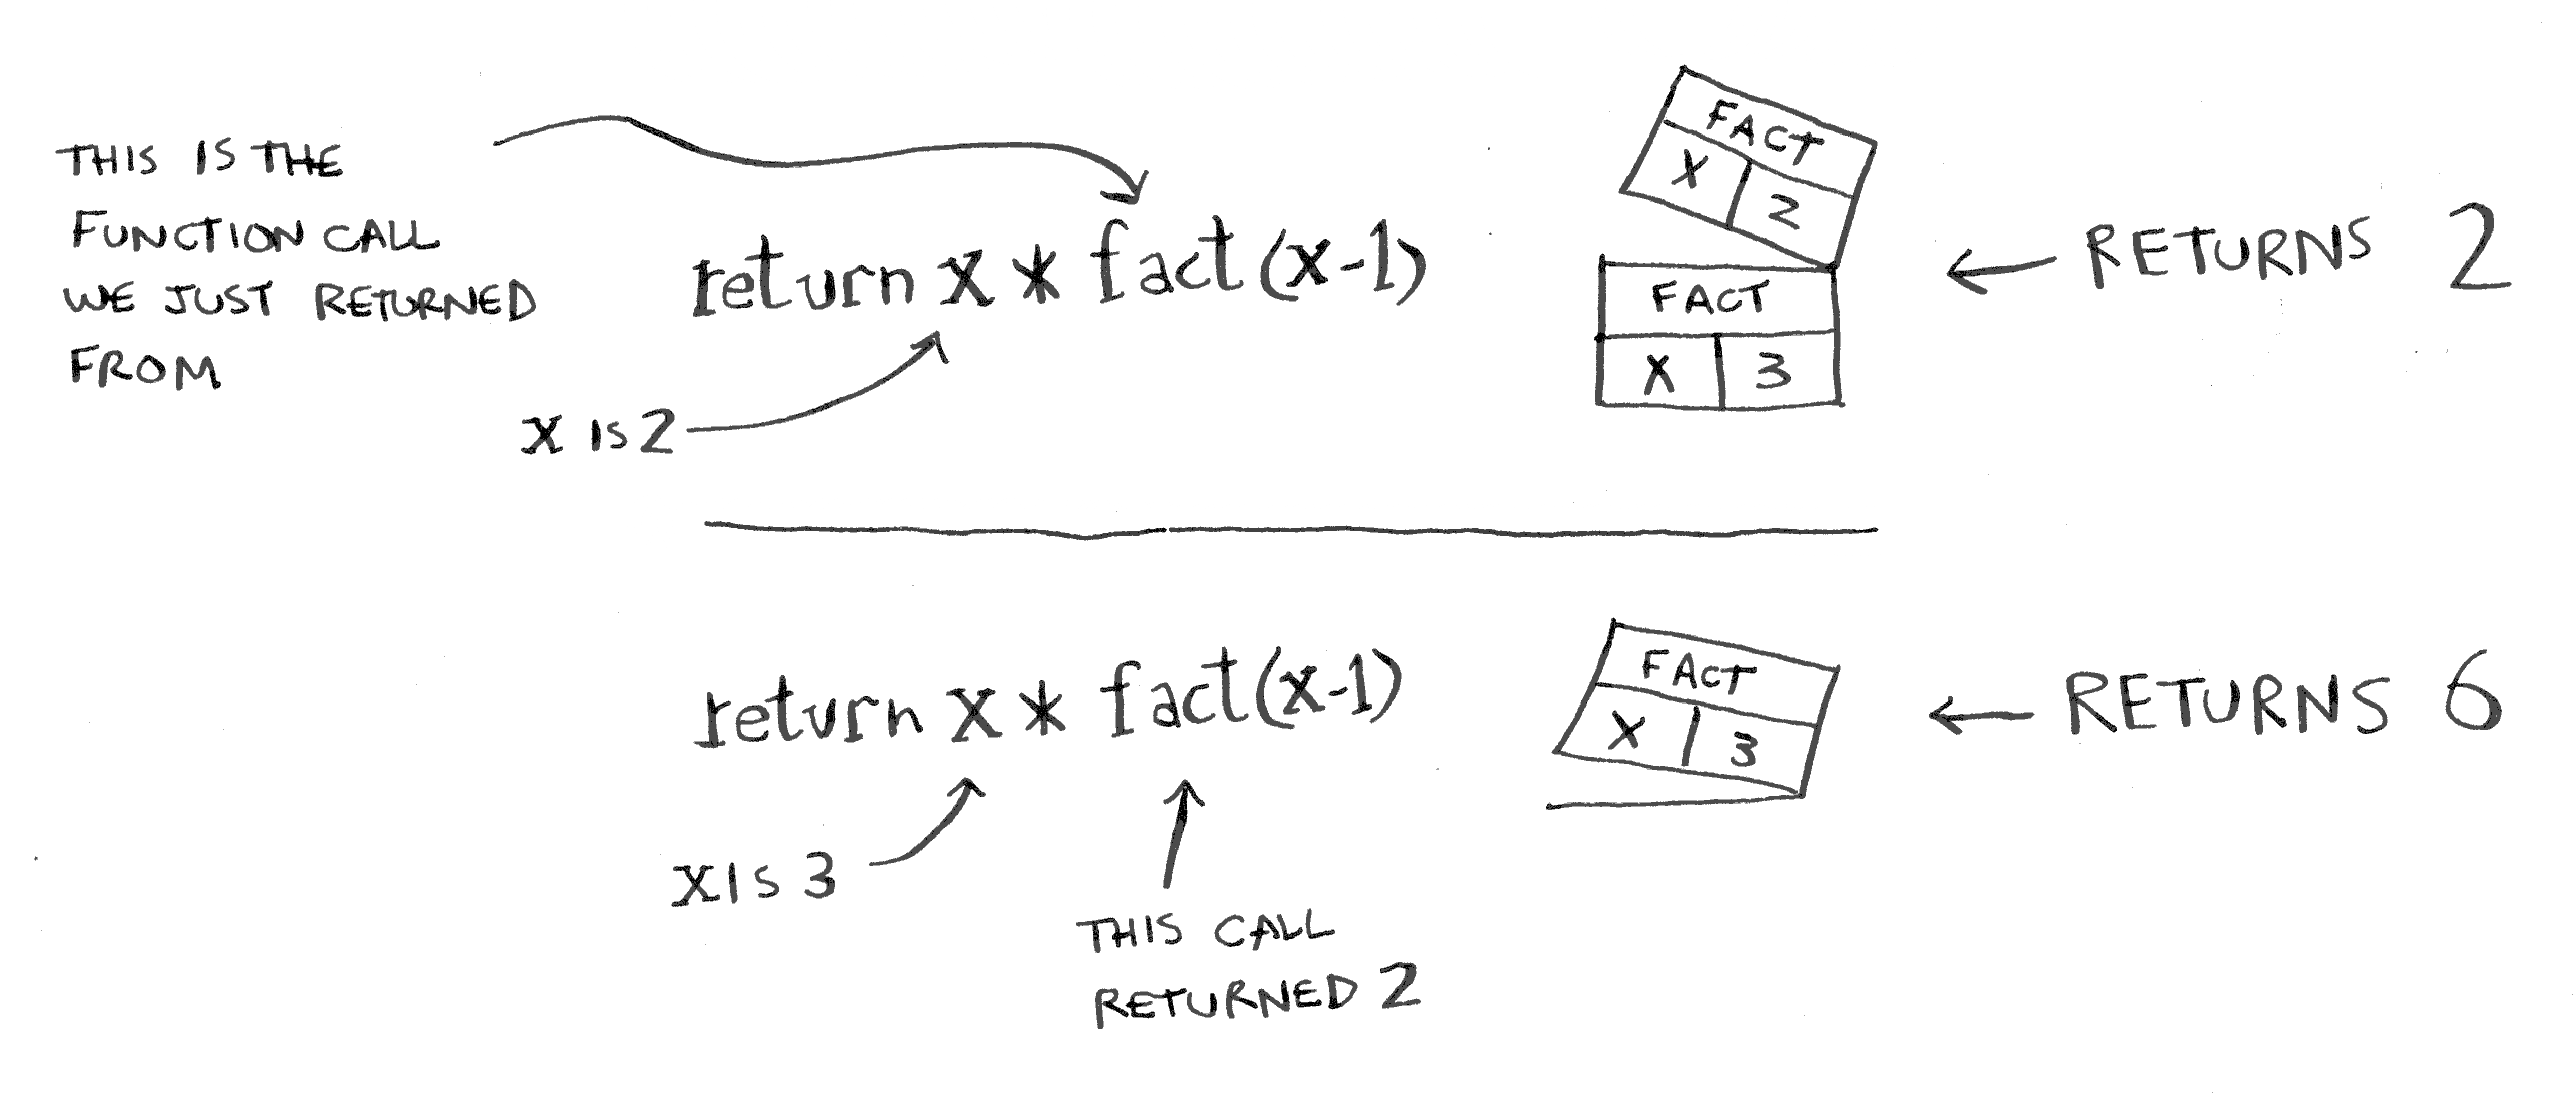 THIS IS THE
FUNCTION CALL
WE JUST RETURNED
FROM
return x * fact(x-1)
x IS 2
FACT
X 2
FACT
X 3
← RETURNS 2
return x * fact(x-1)
x IS 3
THIS CALL
RETURNED 2
FACT
X 3
← RETURNS 6